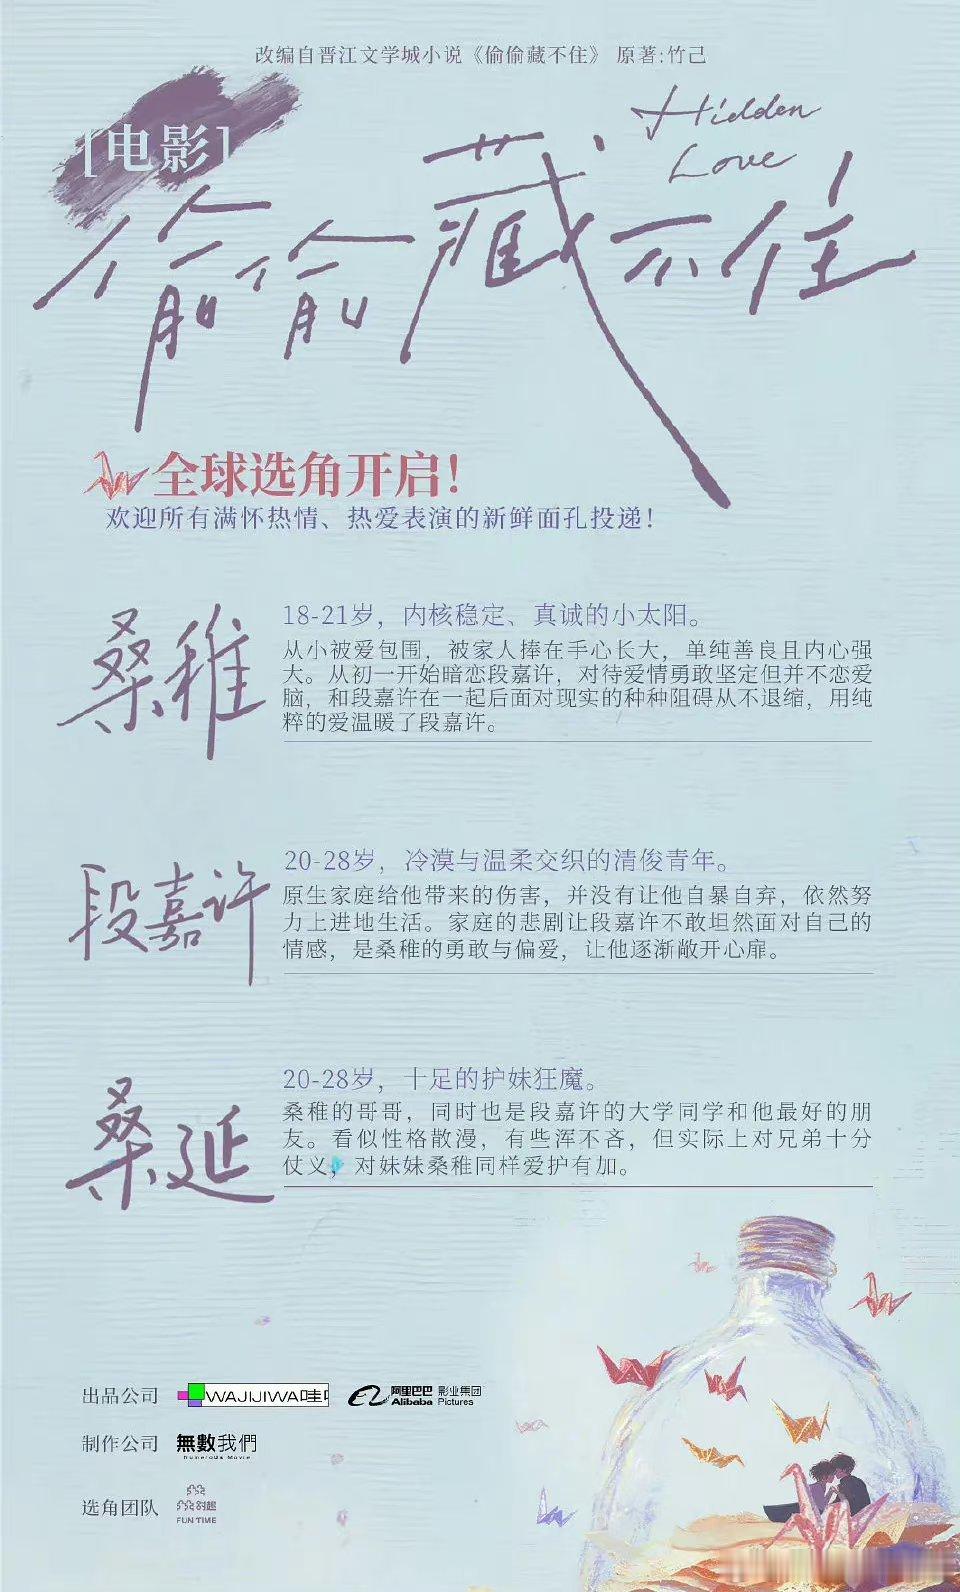 改编自晋江文学城小说《偷偷藏不住》 原著:竹己
[电影]
Hidden
Love
偷偷藏不住
全球选角开启！
欢迎所有满怀热情、热爱表演的新鲜面孔投递！
桑稚
18-21岁，内核稳定、真诚的小太阳。
从小被爱包围，被家人捧在手心长大，单纯善良且内心强
大。从初一开始暗恋段嘉许，对待爱情勇敢坚定但并不恋爱
脑，和段嘉许在一起后面对现实的种种阻碍从不退缩，用纯
粹的爱温暖了段嘉许。
段嘉许
20-28岁，冷漠与温柔交织的清俊青年。
原生家庭给他带来的伤害，并没有让他自暴自弃，依然努
力上进地生活。家庭的悲剧让段嘉许不敢坦然面对自己的
情感，是桑稚的勇敢与偏爱，让他逐渐敞开心扉。
桑延
20-28岁，十足的护妹狂魔。
桑稚的哥哥，同时也是段嘉许的大学同学和他最好的朋
友。看似性格散漫，有些浑不吝，但实际上对兄弟十分
仗义，对妹妹桑稚同样爱护有加。
出品公司 WAJIJIWA哇 阿里巴巴 影业集团
Alibaba Pictures
制作公司 無數我們
Numerous Movie
选角团队
FUN TIME